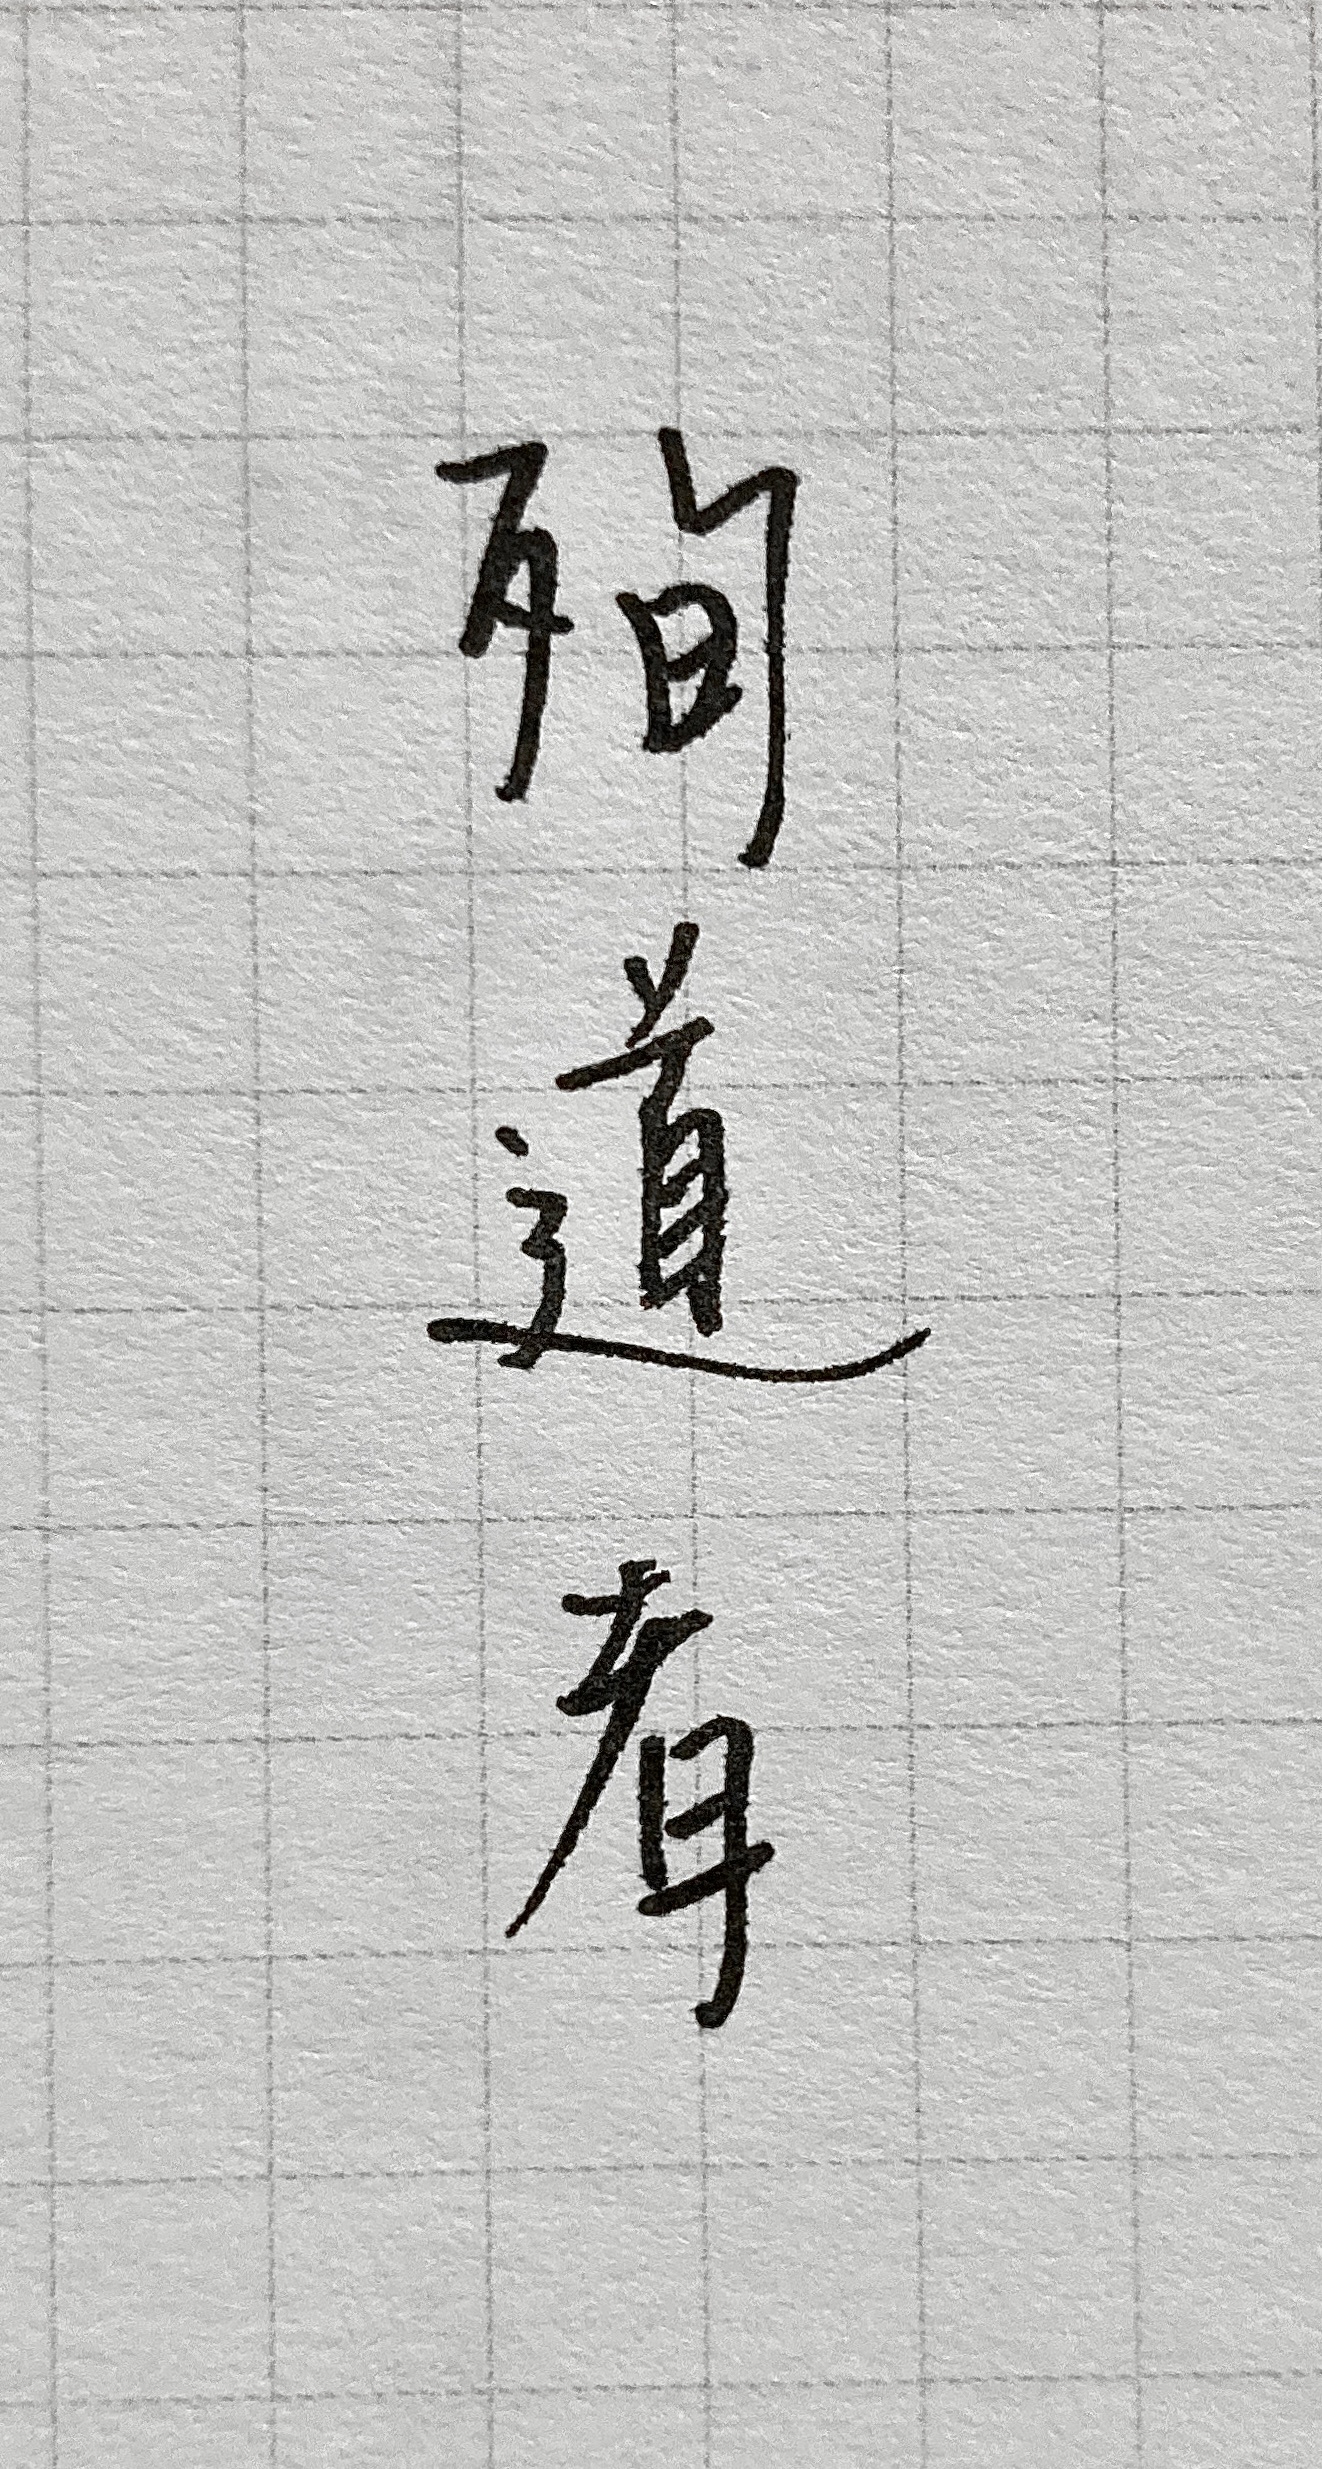 殉道者